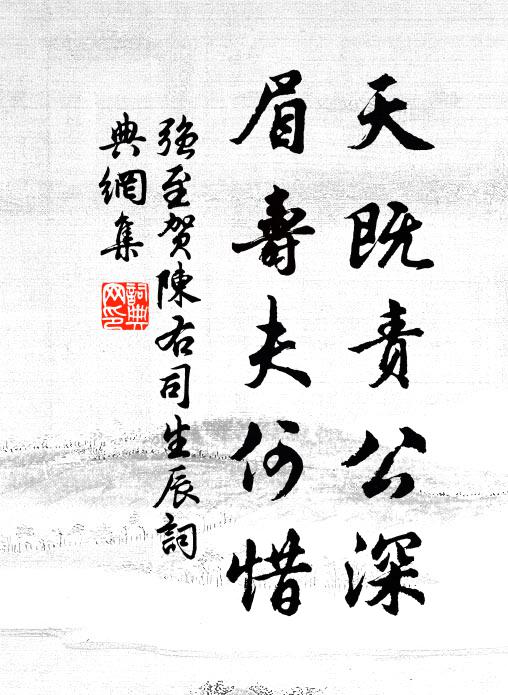 天既責公深
眉壽夫何惜
強至賀陳右司生辰詞
典網集
詞典網印